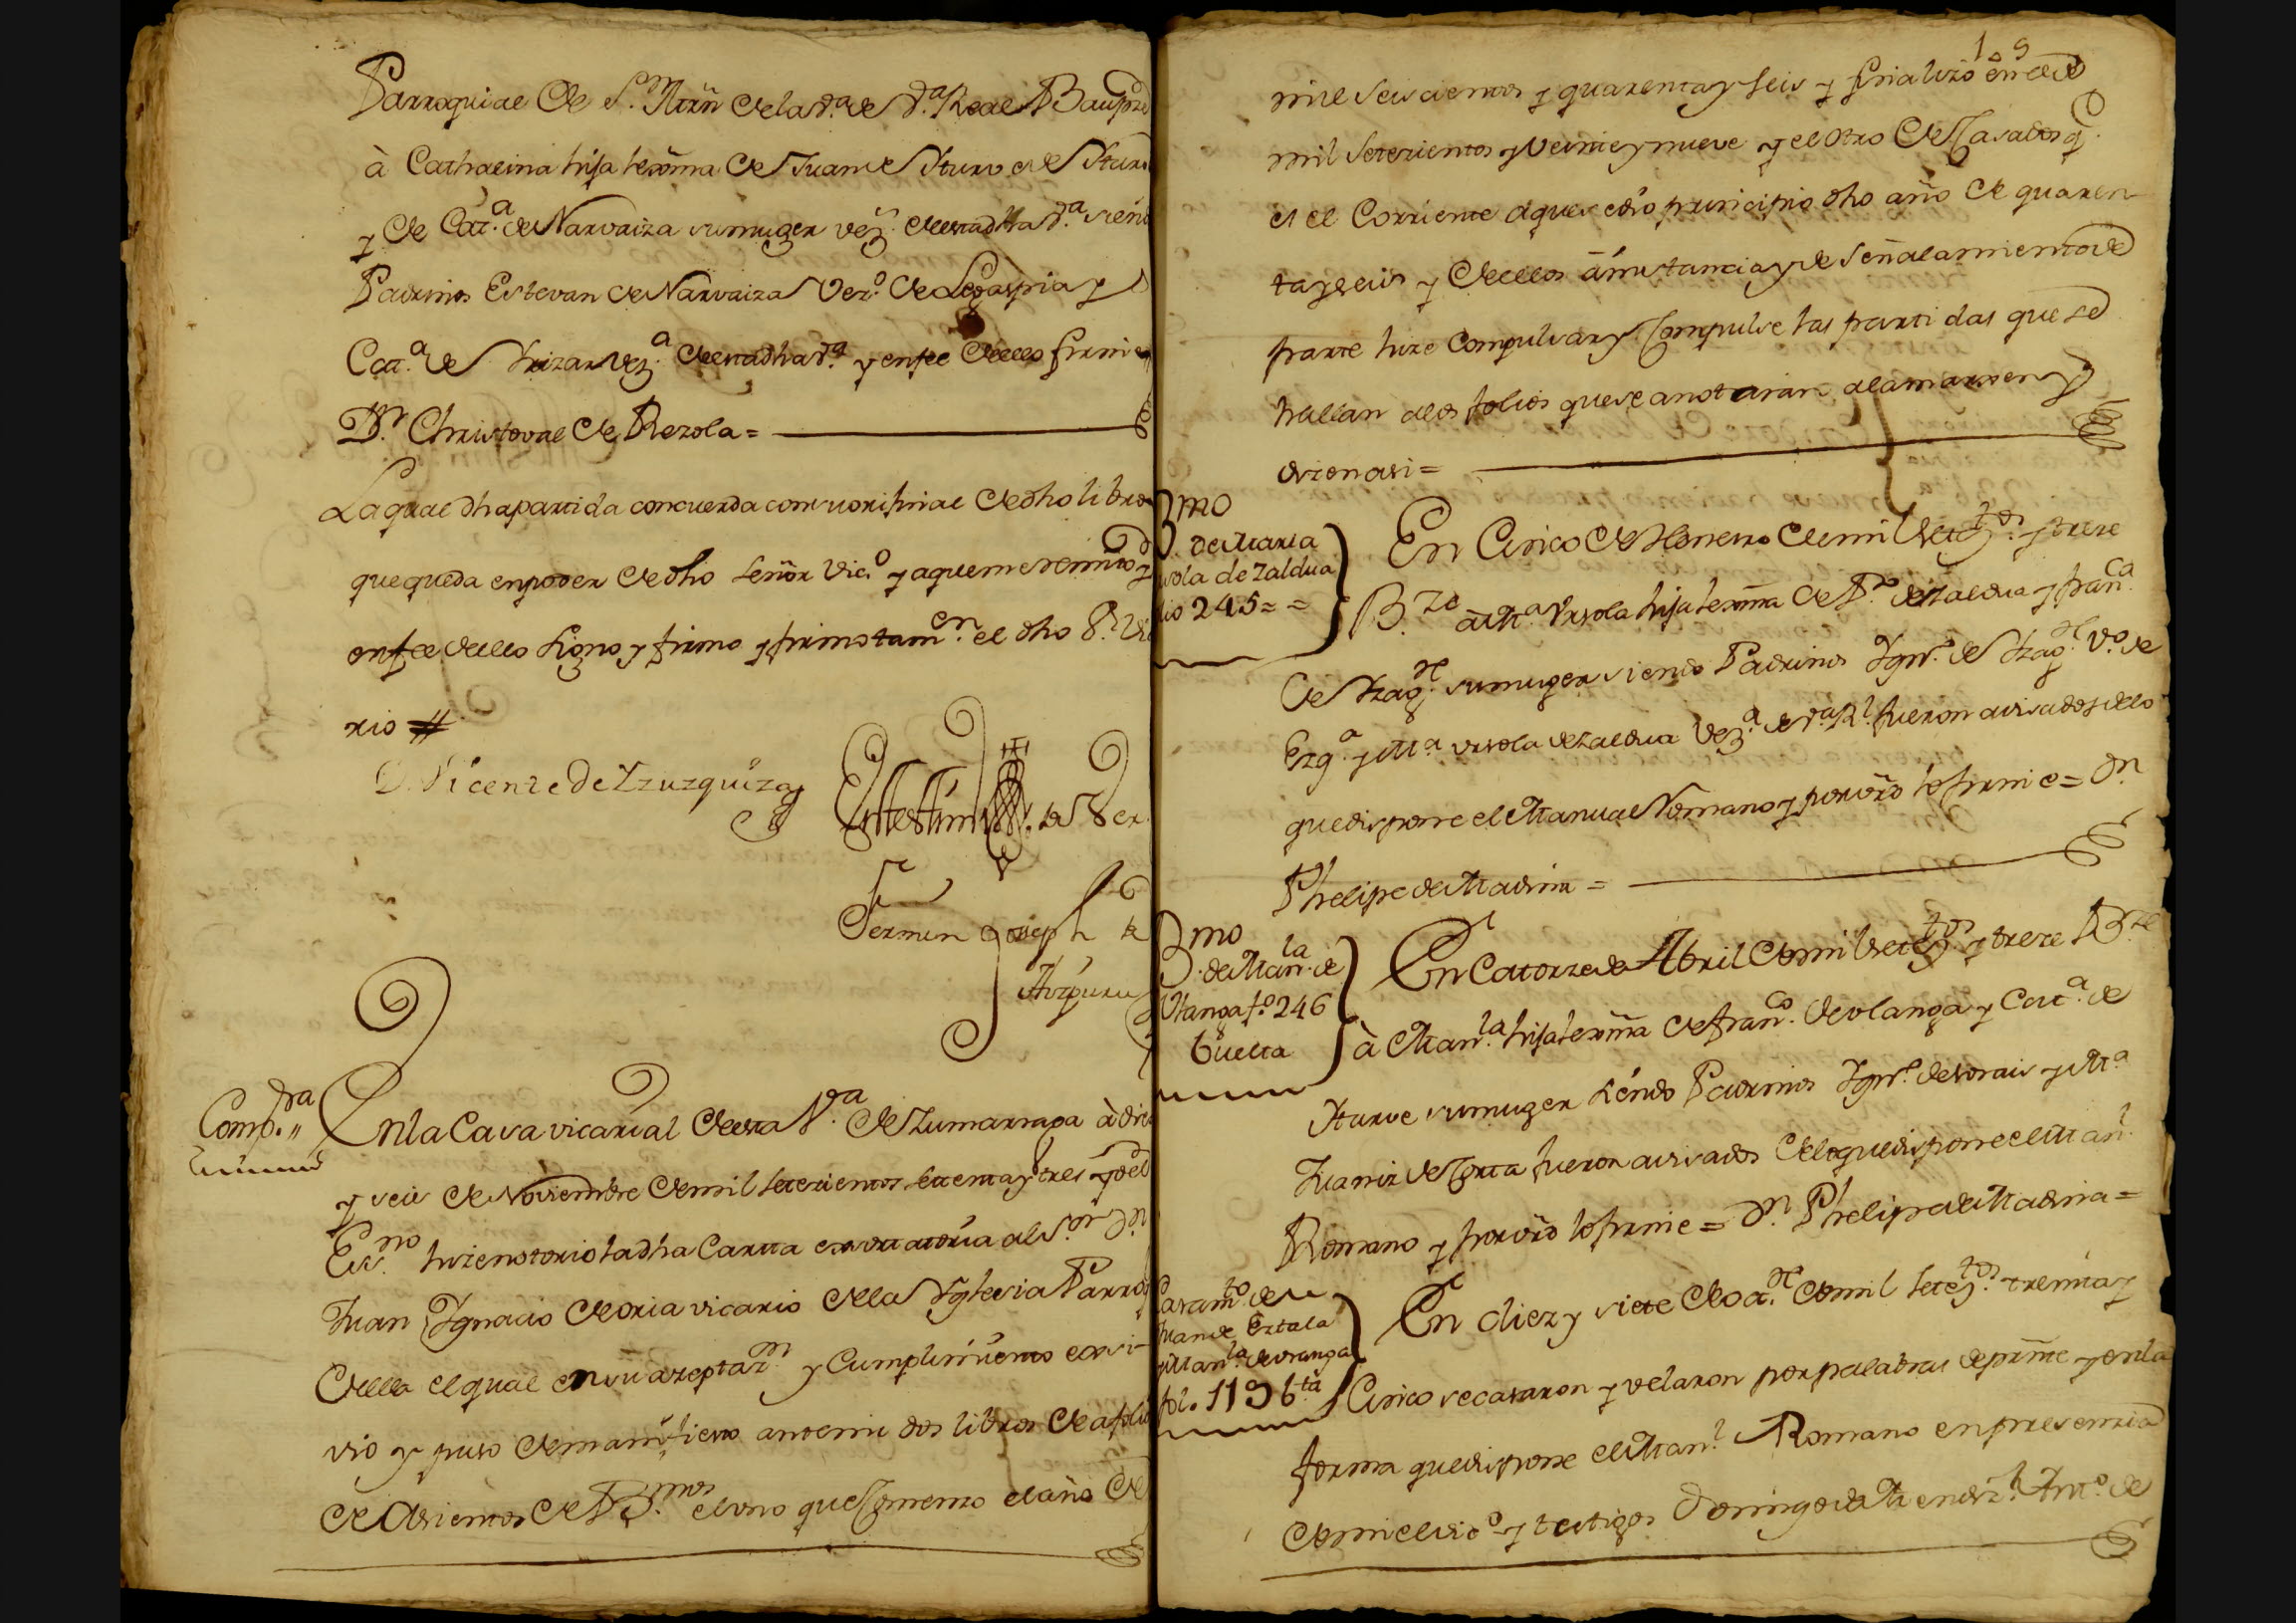 Parroquial de S.n Mrñ de la V.a de V.a Real Baupze
à Cathalina hija lexma de Juan de Yturve e de Ytur
y de Cat.a de Narvaiza su muger vez.s de esta dha V.a sien
Padrinos Estevan de Narvaiza Vez.o de Legaspia y
Cat.a de Yrizar Vez.a de esta dha V.a y en fee de ello firme
D.n Christoval de Rezola =
La qual dha partida concuerda con su orixinal de dho libro
que queda en poder de dho señor Vic.o y a que me remito y
en fee de ello signo y firmo y firmo tam.en el dho S.r Vic
rio #
D. Vicente de Yzuzquiza
En testim.o de Ver
Fermin Joseph de
Aizpuru
Comp.da
En la Casa vicarial de esta V.a de Zumarraga à diez
y seis de Noviembre de mil setezientos setenta y tres yo el
Es.no hize notorio la dha Carta exortatoria al S.or D.n
Juan Ygnacio de Oria vicario de la Yglesia Parroq
de ella el qual en su azeptaz.n y Cumplimiento exsi-
vio y puso de manifiesto ante mi dos libros de a folio
de Asientos de B.mos el uno que Comenzo el año de
105
mil seiscientos y quarenta y seis y finalizo en el de
mil setezientos y veinte y nueve y el otro de Casados q.e
es el Corriente aquel cuio principio dho año de quaren-
ta y seis y de ellos à instancia y de señalamiento de
parte hize Compulsar y Compulse las partidas que se
hallan a los folios que se anotaràn al a marxen y
dizen asi =
B.mo
D. de Maria
Ursola de Zaldua
lio 245 = =
En Cinco de Henero de mil setez.tos y treze
B.ze à M.a Ursola hija lexma de P.o de Zaldua y fran.ca
de Yzag.e su muger siendo Padrinos Ygn.o de Yzag.e V.o de
Ezq.a y M.a Ursola de Zaldua Vez.a de V.a R.l fueron avisados de lo
que dispone el Manual Romano y por vrd lo firme = D.n
Phelipe de Madina =
B.mo
D. de Man.la de
Olanga f.o 246
buelta
En Catorze de Abril de mil setez.tos y treze B.ze
à Man.la hija lexma de fran.co de Olanga y Cat.a de
Yturve su muger siendo Padrinos Ygn.o de Sorais y M.a
Juaniz de Corta fueron avisados de lo que dispone el Man.l
Romano y por vrd lo firme = D.n Phelipe de Madina =
Casam.to de
Juan de Eztala
y Man.la de Olanga
fol. 119 b.ta
En diez y siete de oct.e de mil setez.tos treinta y
Cinco se casaron y velaron por palabras de presnte y en la
forma que dispone el Man.l Romano en presenzia
de mi el vic.o y testigos Domingo de Mendiz.l Ant.o de